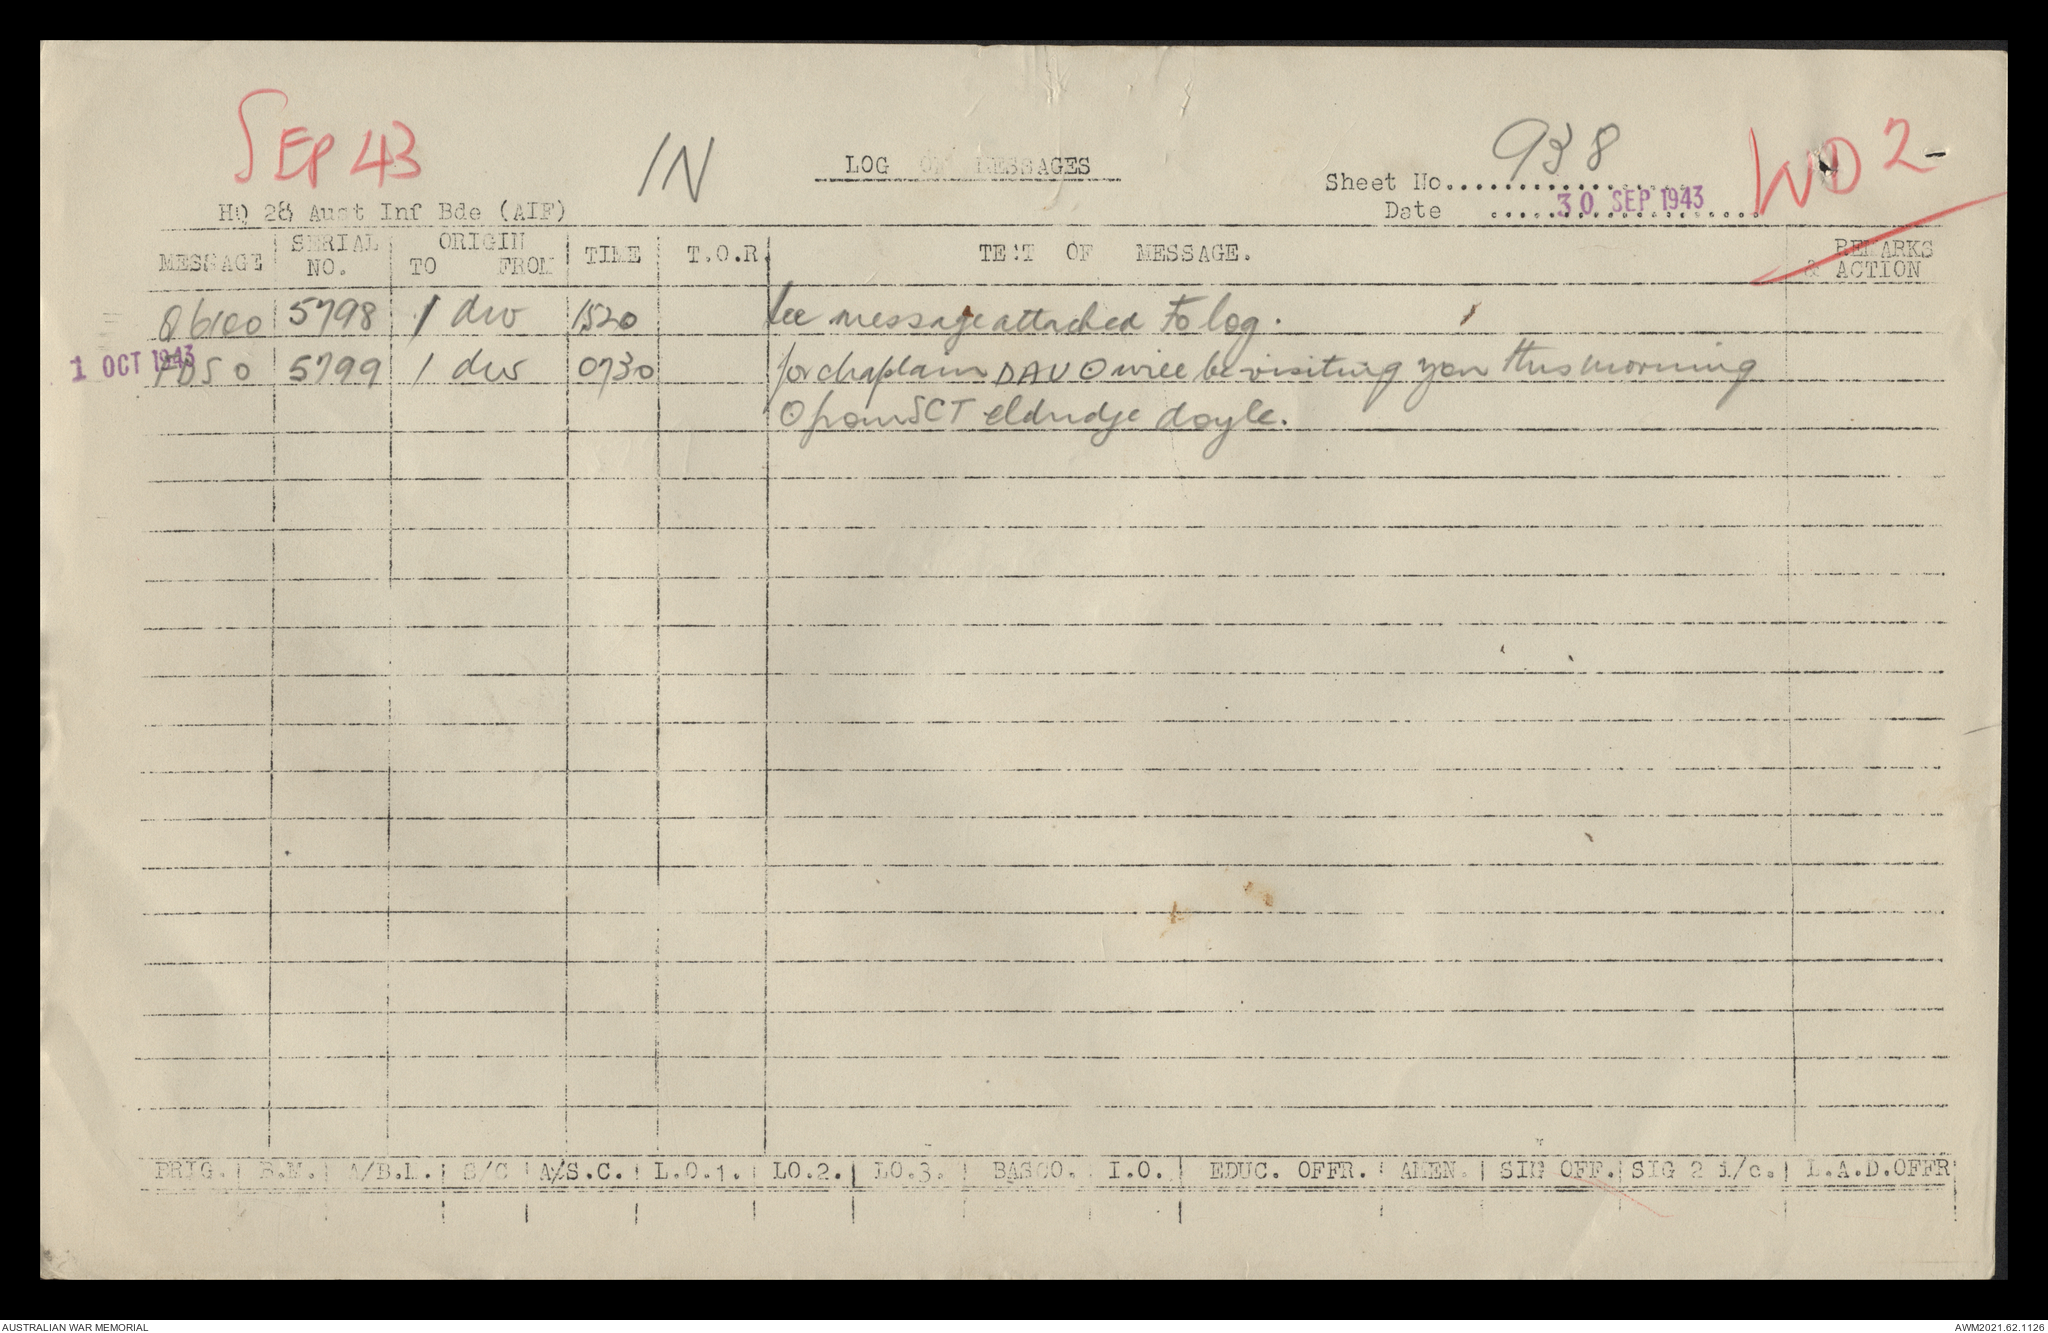 SEP 43
IN
LOG OF MESSAGES
938
WD 2
Sheet No....................
Date 30 SEP 1943
HQ 28 Aust Inf Bde (AIF)
MESSAGE SERIAL NO. ORIGIN TO FROM TIME T.O.R. TEXT OF MESSAGE. REMARKS & ACTION
5798 1 div 1520 See message attached to log.
1 OCT 1943 5799 1 div 0730 for chaplain DAV O will be visiting you this morning
O from SCT eldridge doyle.
BRIG. B.M. A/B.I. S/C A/S.C. L.O.1. LO.2. LO.3. BASCO. I.O. EDUC. OFFR. AMEN. SIG OFF. SIG 2 i/c. L.A.D.OFFR
AUSTRALIAN WAR MEMORIAL
AWM2021.62.1126